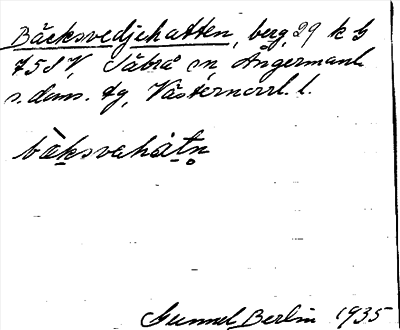 Bäcksvedjehatten, berg, 29 k b
7 5 S V, Säbrå sn, Ångermanl.
s. doms. tg, Västernorrl. l.
bàksvehátn̥
Gunnel Berlin 1935